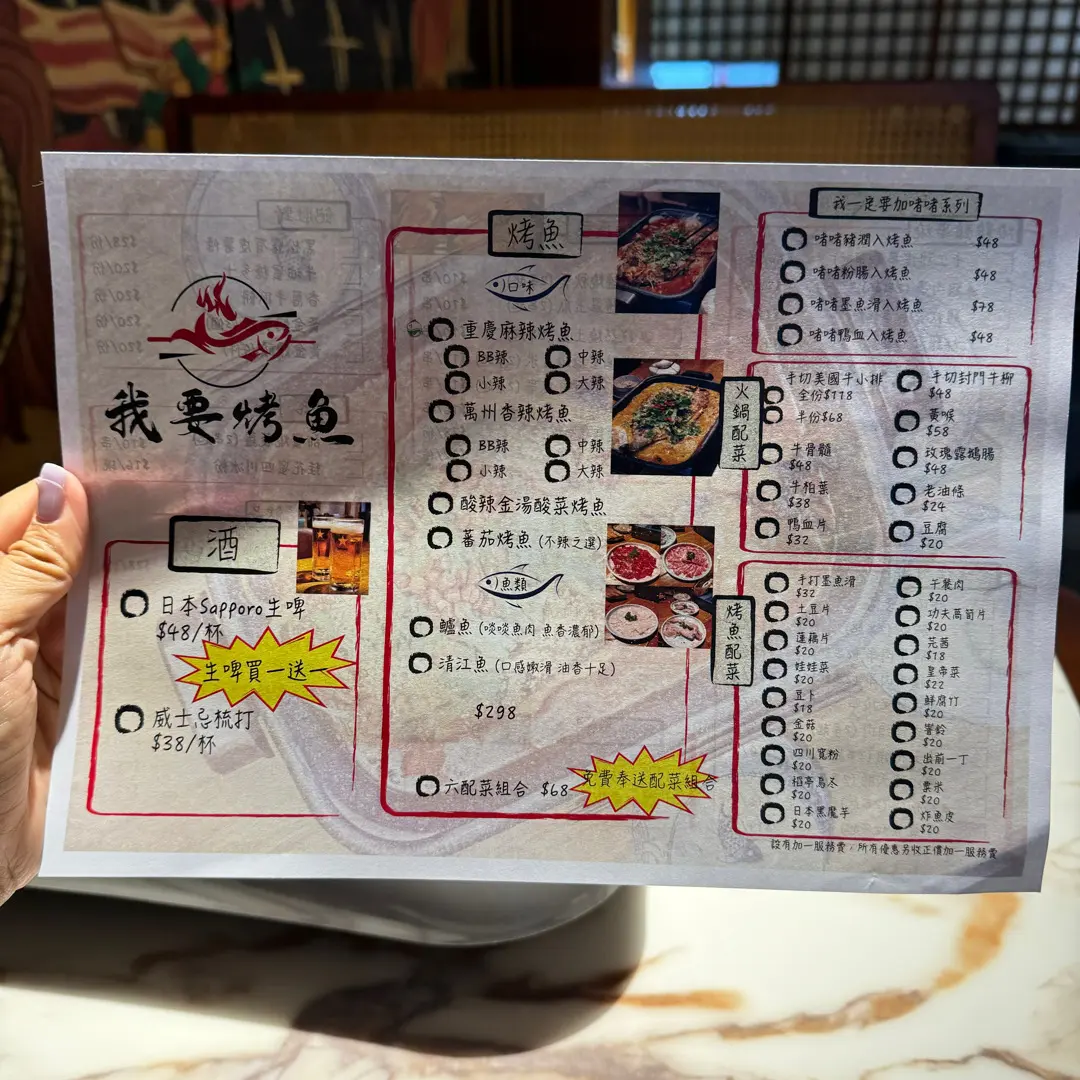 我要烤魚
酒
日本Sapporo生啤
$48/杯
生啤買一送一
威士忌梳打
$38/杯
烤魚
口味
重慶麻辣烤魚
BB辣 中辣
小辣 大辣
萬州香辣烤魚
BB辣 中辣
小辣 大辣
酸辣金湯酸菜烤魚
蕃茄烤魚 (不辣之選)
魚類
鱸魚 (啖啖魚肉 魚香濃郁)
清江魚 (口感嫩滑 油香十足)
$298
六配菜組合 $68
免費奉送配菜組合
我一定要加啫啫系列
啫啫豬潤入烤魚 $48
啫啫粉腸入烤魚 $48
啫啫墨魚滑入烤魚 $78
啫啫鴨血入烤魚 $48
火鍋配菜
手切美國牛小排
全份$118
半份$68
牛骨髓
$48
牛柏葉
$38
鴨血片
$32
手切封門牛柳
$48
黃喉
$58
玫瑰露鵝腸
$48
老油條
$24
豆腐
$20
烤魚配菜
手打墨魚滑
$32
土豆片
$20
蓮藕片
$20
娃娃菜
$20
豆卜
$18
金菇
$20
四川寬粉
$20
稻亭烏冬
$20
日本黑魔芋
$20
午餐肉
$20
功夫萵筍片
$20
芫茜
$18
皇帝菜
$22
鮮腐竹
$20
響鈴
$20
出前一丁
$20
粟米
$20
炸魚皮
$20
設有加一服務費,所有優惠另收正價加一服務費